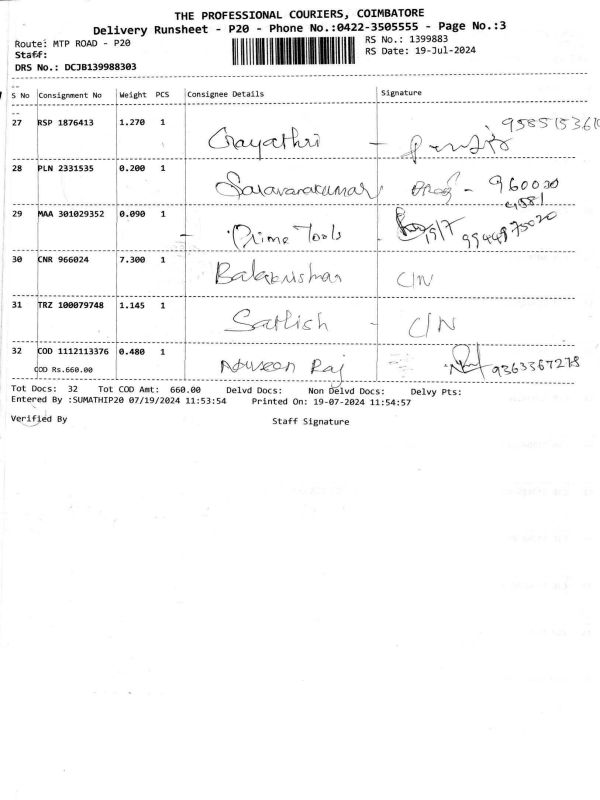 THE PROFESSIONAL COURIERS, COIMBATORE
Delivery Runsheet - P20 - Phone No.:0422-3505555 - Page No.:3
Route: MTP ROAD - P20
RS No.: 1399883
Staff:
RS Date: 19-Jul-2024
DRS No.: DCJB139988303
S No Consignment No Weight PCS Consignee Details Signature
27 RSP 1876413 1.270 1 Gayathri - 9585153610
28 PLN 2331535 0.200 1 Saravanakumar - 960020
4581
29 MAA 301029352 0.090 1 - Prime Tools 19/7 9944975020
30 CNR 966024 7.300 1 Balakrishnan C/N
31 TRZ 100079748 1.145 1 Sathish - C/N
32 COD 1112113376 0.480 1 Naveen Raj 9363367278
COD Rs.660.00
Tot Docs: 32 Tot COD Amt: 660.00 Delvd Docs: Non Delvd Docs: Delvy Pts:
Entered By :SUMATHIP20 07/19/2024 11:53:54 Printed On: 19-07-2024 11:54:57
Verified By Staff Signature